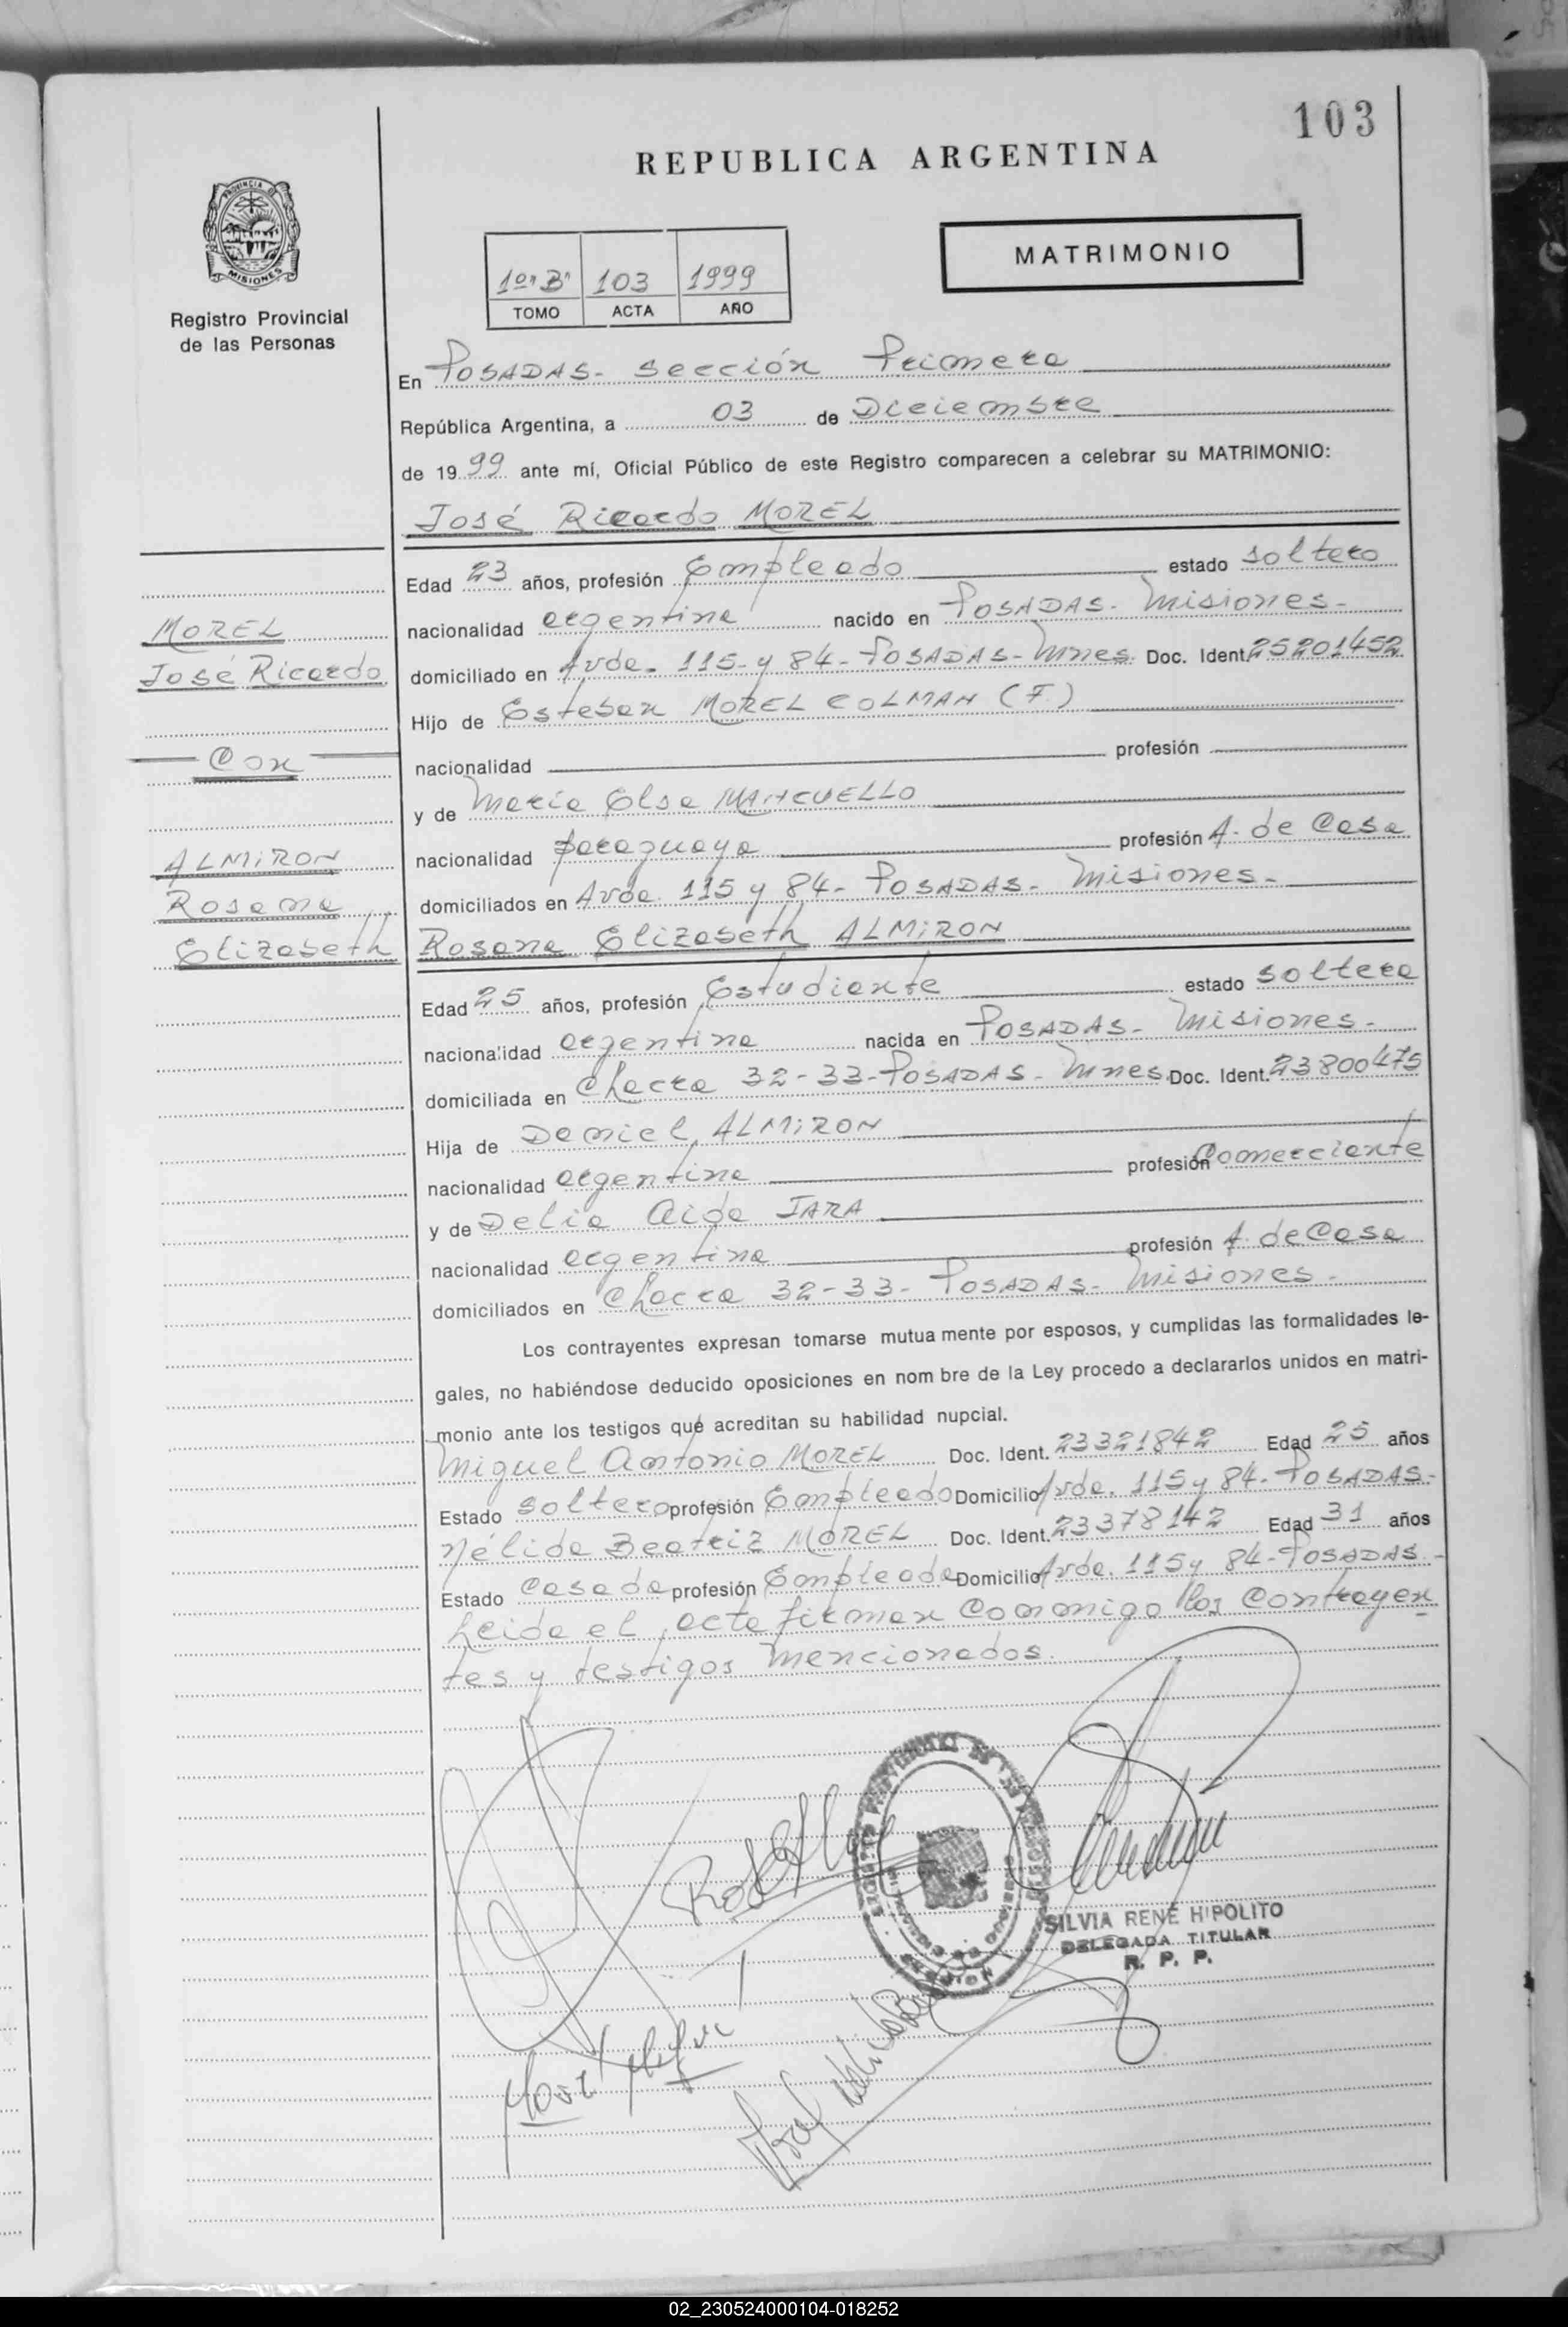 103
REPUBLICA ARGENTINA
PROVINCIA DE
MISIONES
Registro Provincial
de las Personas
1º"B" 103 1999
TOMO ACTA AÑO
MATRIMONIO
En POSADAS- Sección Primera
República Argentina, a 03 de Diciembre
de 1999 ante mí, Oficial Público de este Registro comparecen a celebrar su MATRIMONIO:
José Ricardo MOREL
Edad 23 años, profesión Empleado estado soltero
MOREL
nacionalidad argentina nacido en POSADAS- Misiones-
José Ricardo
domiciliado en Avda. 115 y 84- POSADAS- Mnes. Doc. Ident. 25201452
Hijo de Esteban MOREL COLMAN (F.)
Con
nacionalidad profesión
y de María Elsa MANCUELLO
ALMIRON
nacionalidad paraguaya profesión A. de Casa
Rosana
domiciliados en Avda. 115 y 84- POSADAS- Misiones-
Elizabeth
Rosana Elizabeth ALMIRON
Edad 25 años, profesión Estudiante estado soltera
nacionalidad argentina nacida en POSADAS- Misiones-
domiciliada en Chacra 32-33-POSADAS- Mnes. Doc. Ident. 23800475
Hija de Daniel ALMIRON
nacionalidad argentina profesión Comerciante
y de Delia Aida JARA
nacionalidad argentina profesión A. de Casa
domiciliados en Chacra 32-33- POSADAS- Misiones-
Los contrayentes expresan tomarse mutua mente por esposos, y cumplidas las formalidades le-
gales, no habiéndose deducido oposiciones en nom bre de la Ley procedo a declararlos unidos en matri-
monio ante los testigos qué acreditan su habilidad nupcial.
Miguel Antonio MOREL Doc. Ident. 23321842 Edad 25 años
Estado soltero profesión Empleado Domicilio Avda. 115 y 84- POSADAS-
Nélida Beatriz MOREL Doc. Ident. 23378142 Edad 31 años
Estado Casada profesión Empleada Domicilio Avda. 115 y 84-POSADAS-
Leida el acta firman Conmigo los Contrayen
tes y testigos mencionados.
SILVIA RENÉ HIPOLITO
DELEGADA TITULAR
R. P. P.
02_230524000104-018252